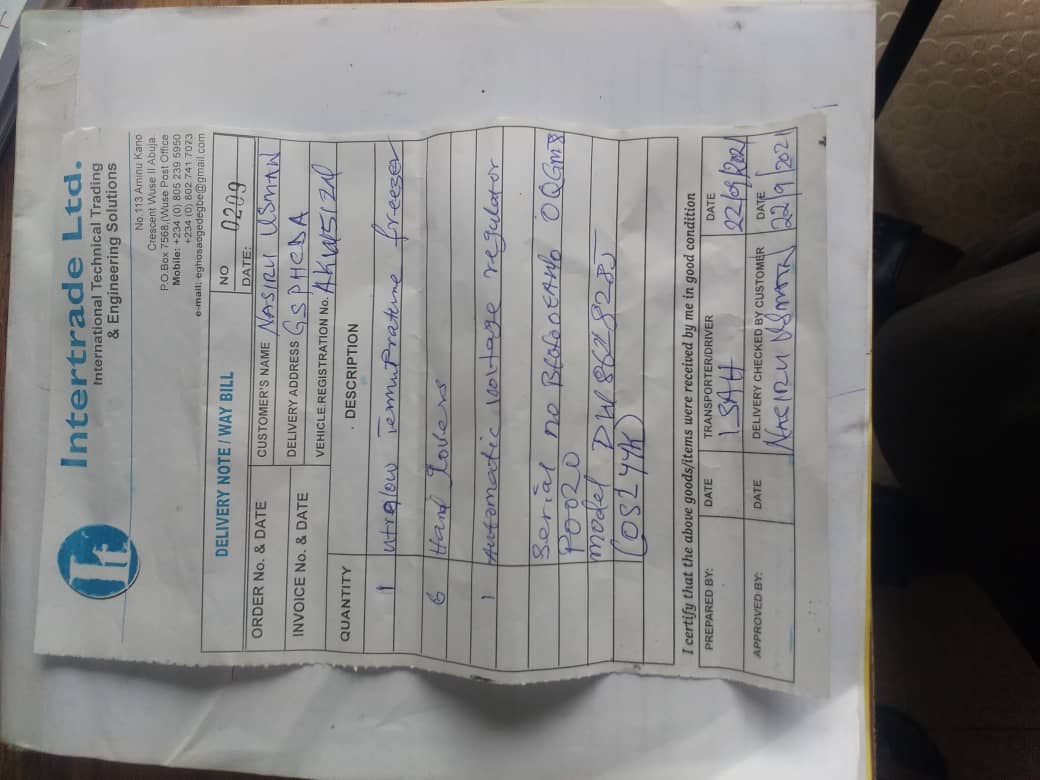 Intertrade Ltd.
International Technical Trading
& Engineering Solutions
No.113 Aminu Kano
Crescent Wuse II Abuja.
P.O.Box 7568,(Wuse Post Office
Mobile: +234 (0) 805 239 5950
+234 (0) 802 741 7023
e-mail: eghosaogedegbe@gmail.com
DELIVERY NOTE / WAY BILL
NO 0299
DATE:
ORDER No. & DATE
CUSTOMER'S NAME NASIRU USMAN
INVOICE No. & DATE
DELIVERY ADDRESS GSPHCDA
VEHICLE REGISTRATION No.
QUANTITY DESCRIPTION
1 utralow Temmprature freezer
6 Hand glovens
1 Automatic voltage regulator
Serial no
P0020
model
I certify that the above goods/items were received by me in good condition
PREPARED BY: DATE TRANSPORTER/DRIVER DATE
ISAH 22/09/2021
APPROVED BY: DATE DELIVERY CHECKED BY CUSTOMER DATE
NASIRU USMAN 22/9/2021